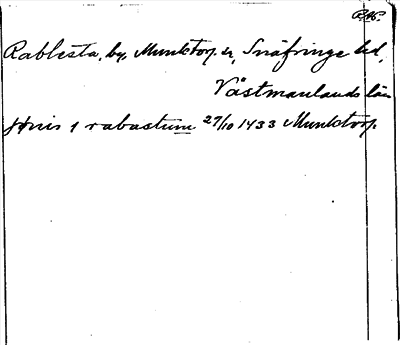 Rablesta, by, Munktorp sn, Snäfringe hd,
Västmanlands län
jönis j rabastum 27/10 1433 Munktorp.